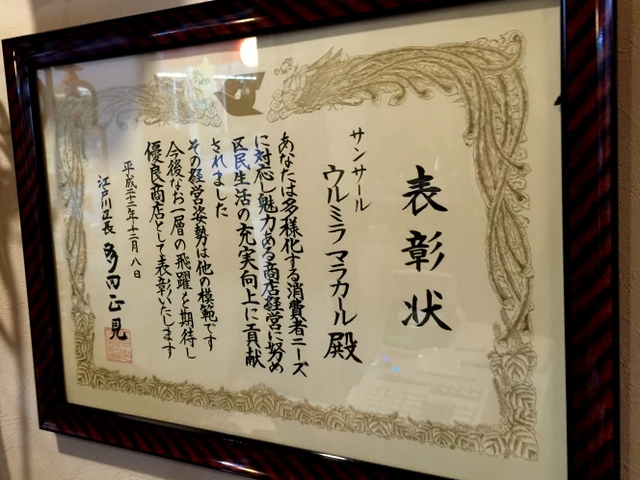 表彰状
サンサール
ウルミラ マラカール殿
あなたは多様化する消費者ニーズ
に対応し魅力ある商店経営に努め
区民生活の充実向上に貢献
されました
その経営姿勢は他の模範です
今後なお一層の飛躍を期待し
優良商店として表彰いたします
平成二十二年十二月八日
江戸川区長 多田正見